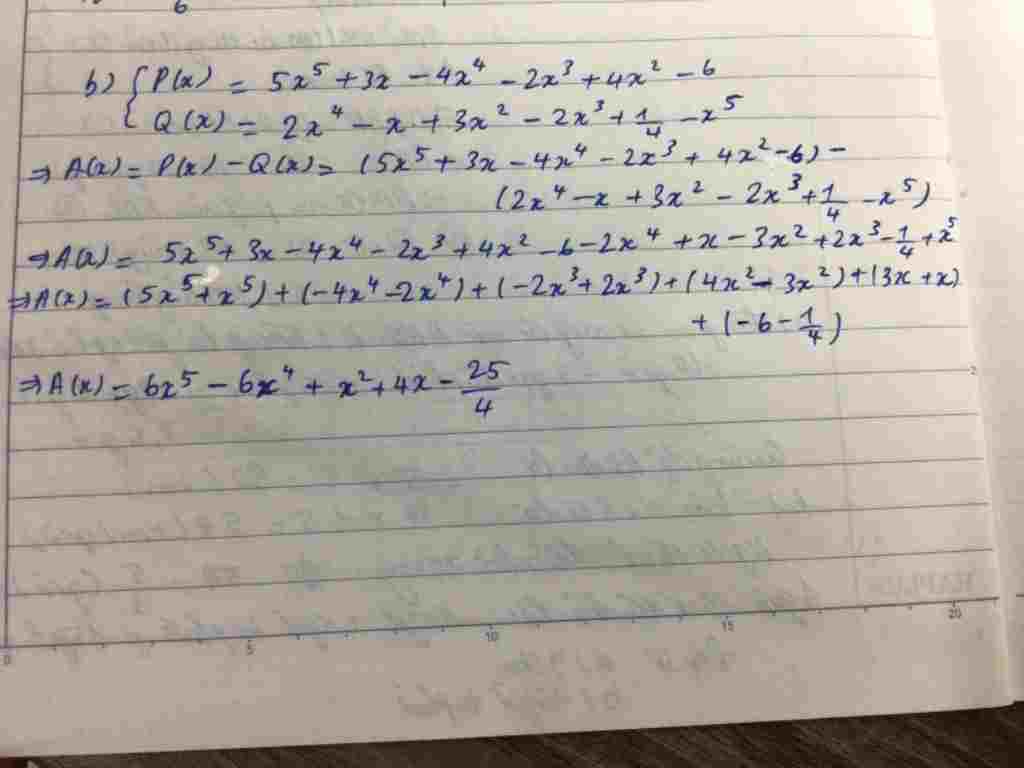 6
b) { P(x) = 5x⁵ + 3x - 4x⁴ - 2x³ + 4x² - 6
Q(x) = 2x⁴ - x + 3x² - 2x³ + 1/4 - x⁵
⇒ A(x) = P(x) - Q(x) = (5x⁵ + 3x - 4x⁴ - 2x³ + 4x² - 6) -
(2x⁴ - x + 3x² - 2x³ + 1/4 - x⁵)
⇒ A(x) = 5x⁵ + 3x - 4x⁴ - 2x³ + 4x² - 6 - 2x⁴ + x - 3x² + 2x³ - 1/4 + x⁵
⇒ A(x) = (5x⁵ + x⁵) + (-4x⁴ - 2x⁴) + (-2x³ + 2x³) + (4x² - 3x²) + (3x + x)
+ (-6 - 1/4)
⇒ A(x) = 6x⁵ - 6x⁴ + x² + 4x - 25/4
2
0 5 10 15 20